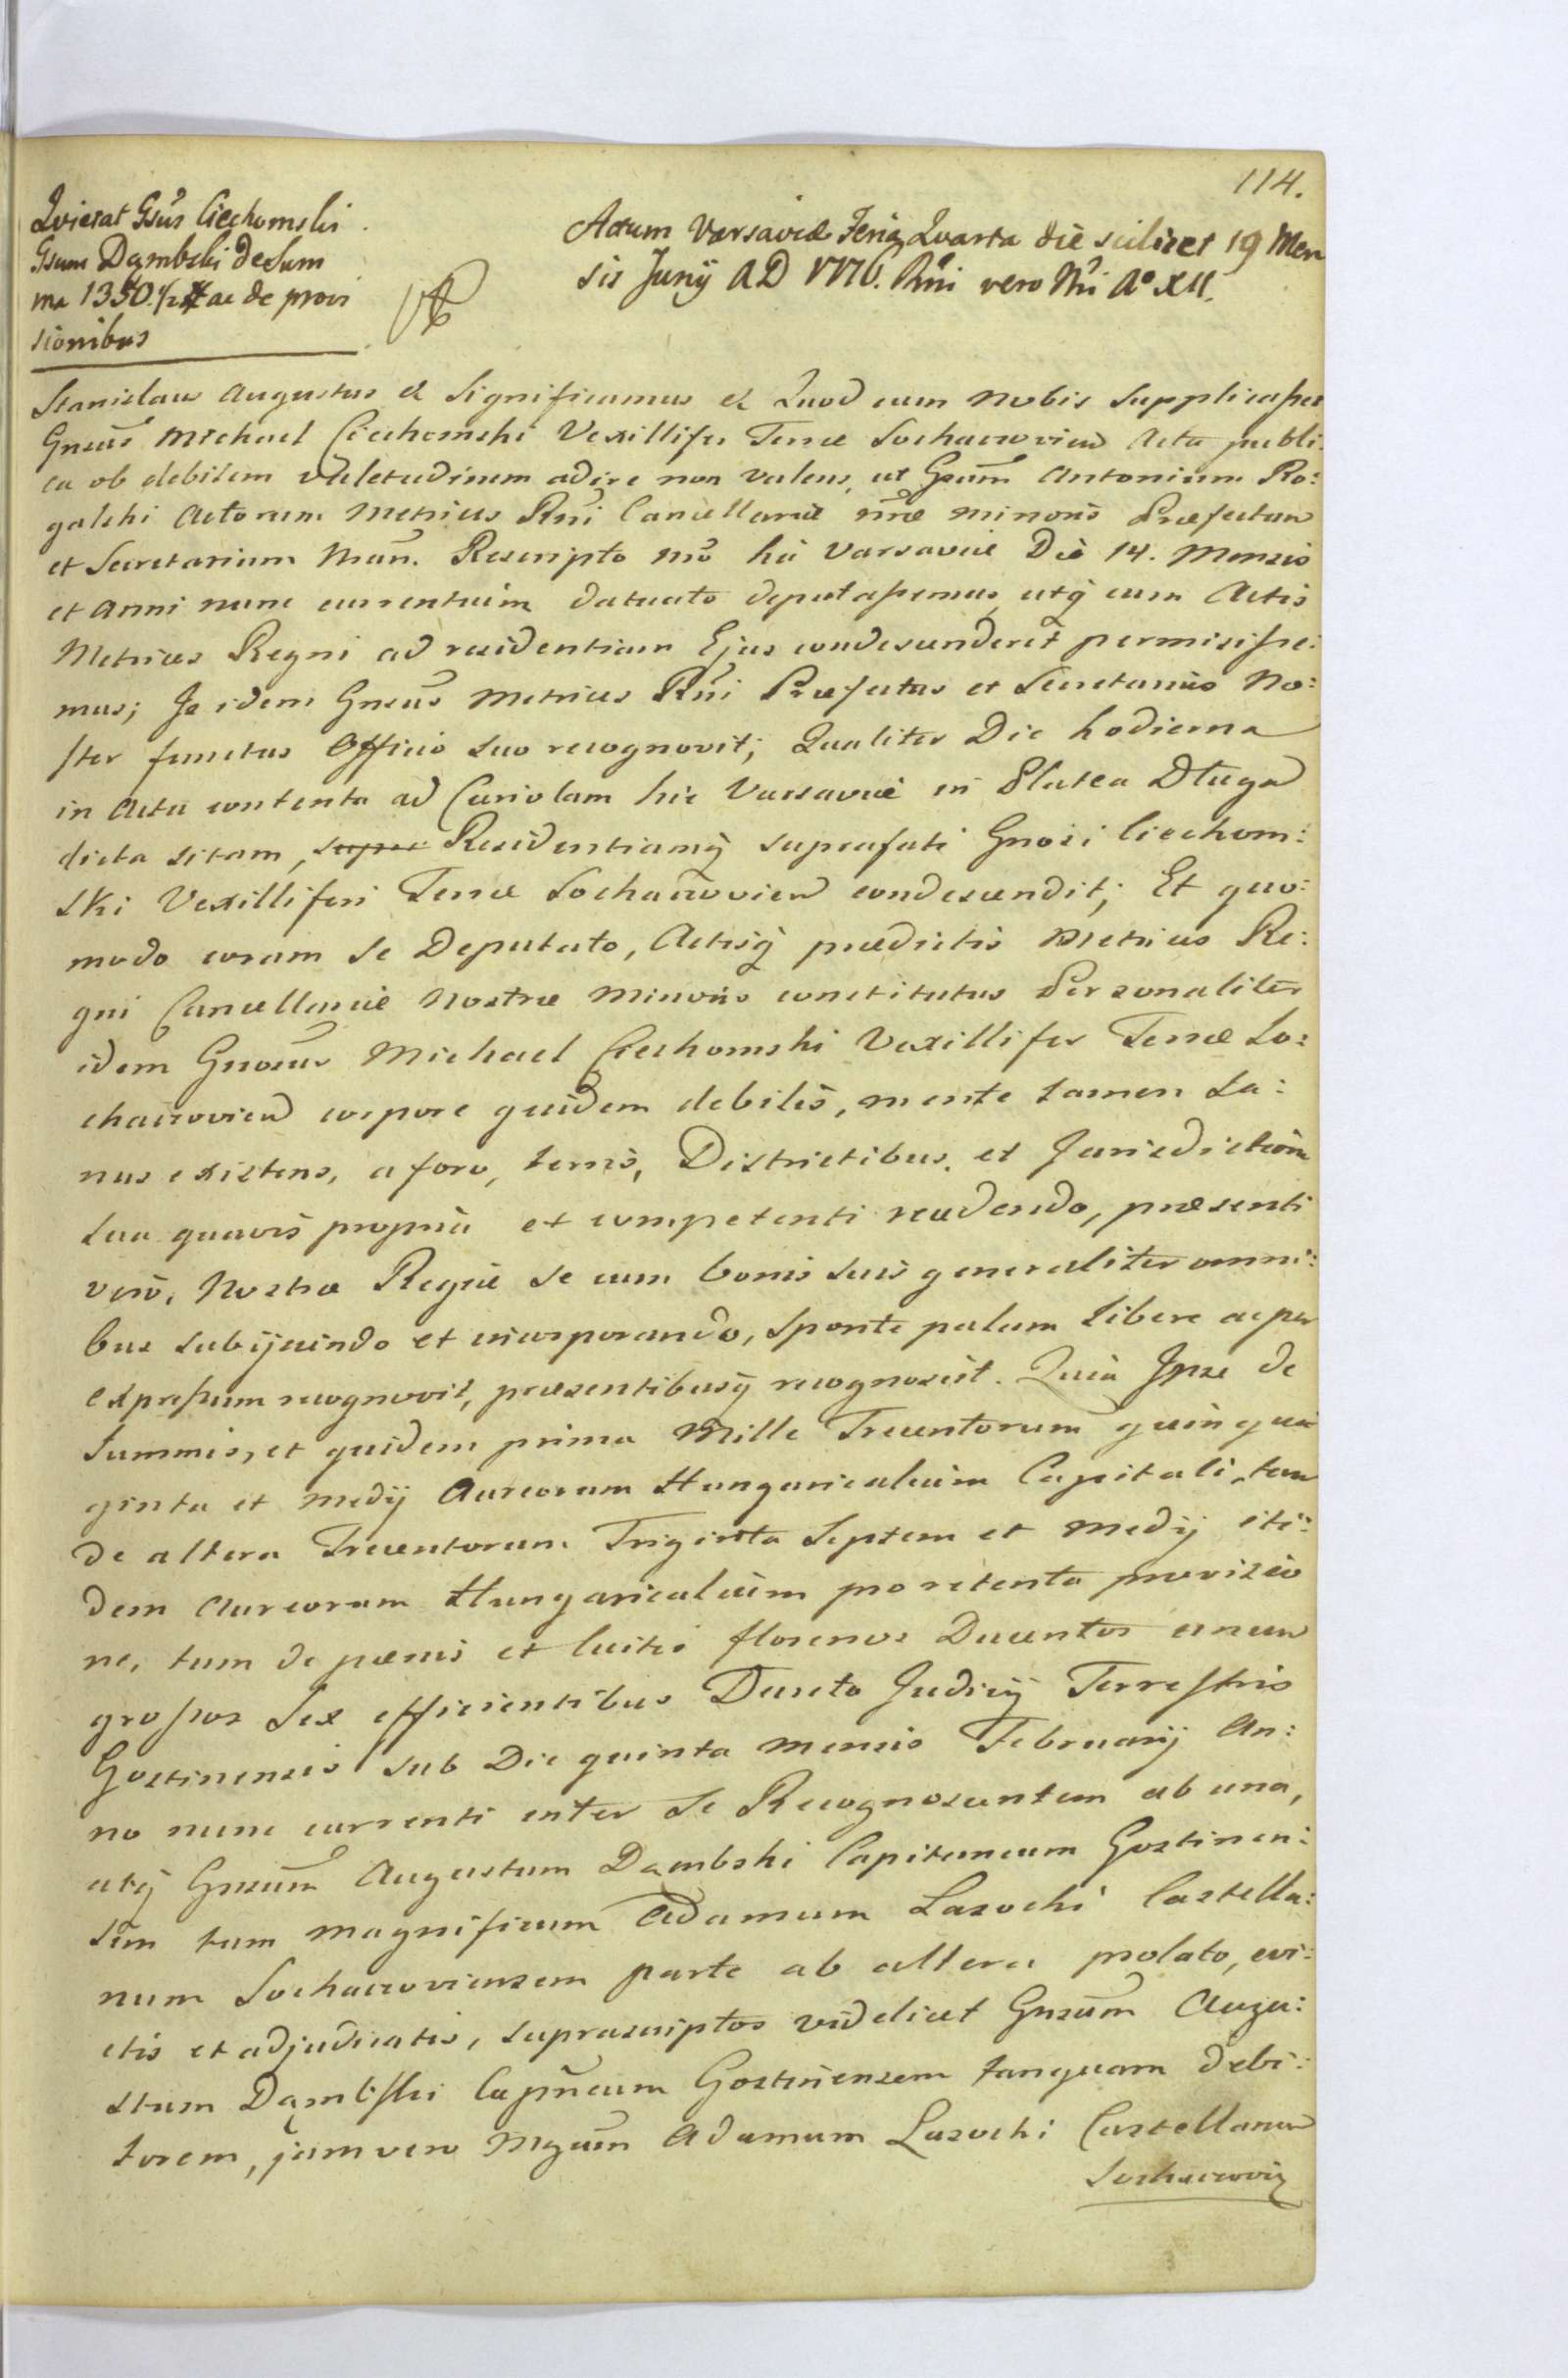 114.
Qvietat Gsus Ciechomski
Gsum Dąmbski de Sum
ma 1350.½ # ac de provi
sionibus
Actum Varsaviæ Feria Quarta die scilicet 19 Men
sis Junij AD 1776. Rni vero Nri A° XII.
Stanislaus Augustus & Significamus & Quod cum Nobis Supplicasset
Gnsus Michael Ciechomski Vexillifer Terræ Sochaczovien Acta publi:
ca ob debilem valetudinem adire non valens, ut Gsum Antonium Ro:
galski Actorum Metrices Rni Cancellariæ nræ minoris Præfectum
et Secretarium Nrum. Rescripto nro hic Varsaviæ Die 14. Mensis
et Anni nunc currentium datuato deputassemus, utq cum Actis
Metrices Regni ad residentiam Ejus condescenderet permisisse:
mus; Is idem Gnsus Metrices Rni Præfectus et Secretarius No:
ster functus Officio suo recognovit; Qualiter Die hodierna
in Actu contenta ad Curiolam hic Varsaviæ in Platea Długa
dicta sitam, Residentiamq suprafati Gnosi Ciechom:
ski Vexilliferi Terræ Sochaczovien condescendit; Et quo:
modo coram se Deputato, Actisq prædictis Metrices Re:
gni Cancellariæ Nostræ Minoris constitutus Personaliter
idem Gnosus Michael Ciechomski Vexillifer Terræ So:
chaczovien corpore quidem debilis, mente tamen sa:
nus existens, a foro, terris, Districtibus, et Jurisdictione
sua quavis propria et competenti recedendo, præsenti
vero, Nostræ Regiæ se cum bonis suis generaliter omni:
bus subijciendo et incorporando, sponte palam libere ac per
expressum recognovit, præsentibusq recognoscit. Quia Ipse de
Summis, et quidem prima Mille Trecentorum quinqua
ginta et medij Aureorum Hungaricalium Capitali, tum
de altera Trecentorum Triginta Septem et medij iti:
dem Aureorum Hungaricalium pro retenta provisio
ne, tum de pœnis et luitis florenos Ducentos unum
grossos Sex efficientibus Decreto Judicij Terrestris
Gostinensis sub Die quinta mensis Februarij An:
no nunc currenti inter Se Recognoscentem ab una,
atq Gnsum Augustum Dąmbski Capitaneum Gostinen:
sem tum Magnificum Adamum Lasocki Castella:
num Sochaczoviensem parte ab altera prolato, evi:
ctis et adjudicatis, suprascriptos videlicet Gnsum Augu:
stum Dąmbski Capneum Gostinensem tanquam debi:
torem, jam vero Mgcum Adamum Lasocki Castellanum
Sochaczovien